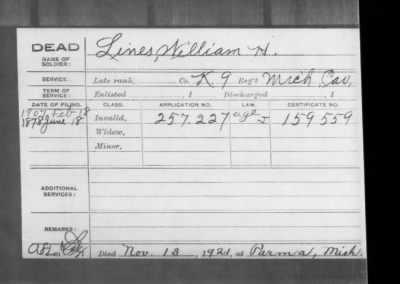 DEAD
NAME OF SOLDIER:
Lines, William H.
SERVICE:
Late rank, Co. K. 9 Reg't Mich. Cav,
TERM OF SERVICE:
Enlisted , 1 Discharged , 1
DATE OF FILING. CLASS. APPLICATION NO. LAW. CERTIFICATE NO.
1907 Feb 18
1878 June 18 Invalid, 257.227 age 159559
Widow,
Minor,
ADDITIONAL SERVICES:
REMARKS:
Died Nov. 13, 1921, at Parma, Mich.